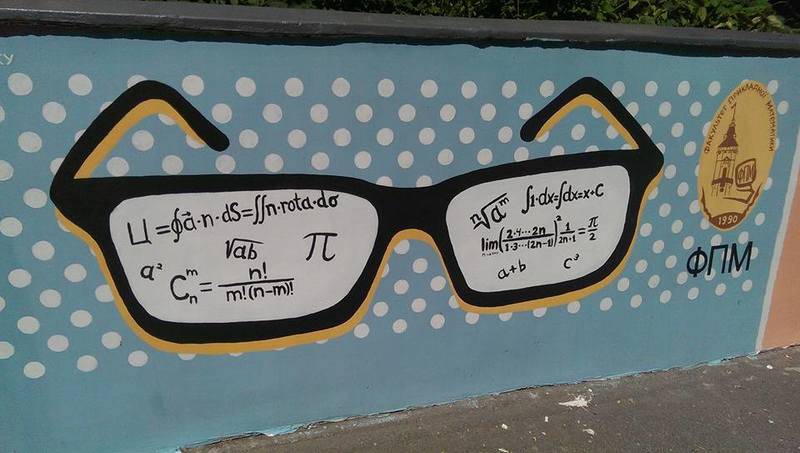 Ц=∮a⃗·n·dS=∬n·rota·dσ
√ab
π
a²
Cₙᵐ = n!/m!(n-m)!
ⁿ√aᵐ
∫1·dx=∫dx=x+C
lim(2·4···2n/1·3···(2n-1))² 1/2n·1 = π/2
a+b
c³
ФАКУЛЬТЕТ ПРИКЛАДНОЇ МАТЕМАТИКИ
ФПМ
1990
ФПМ